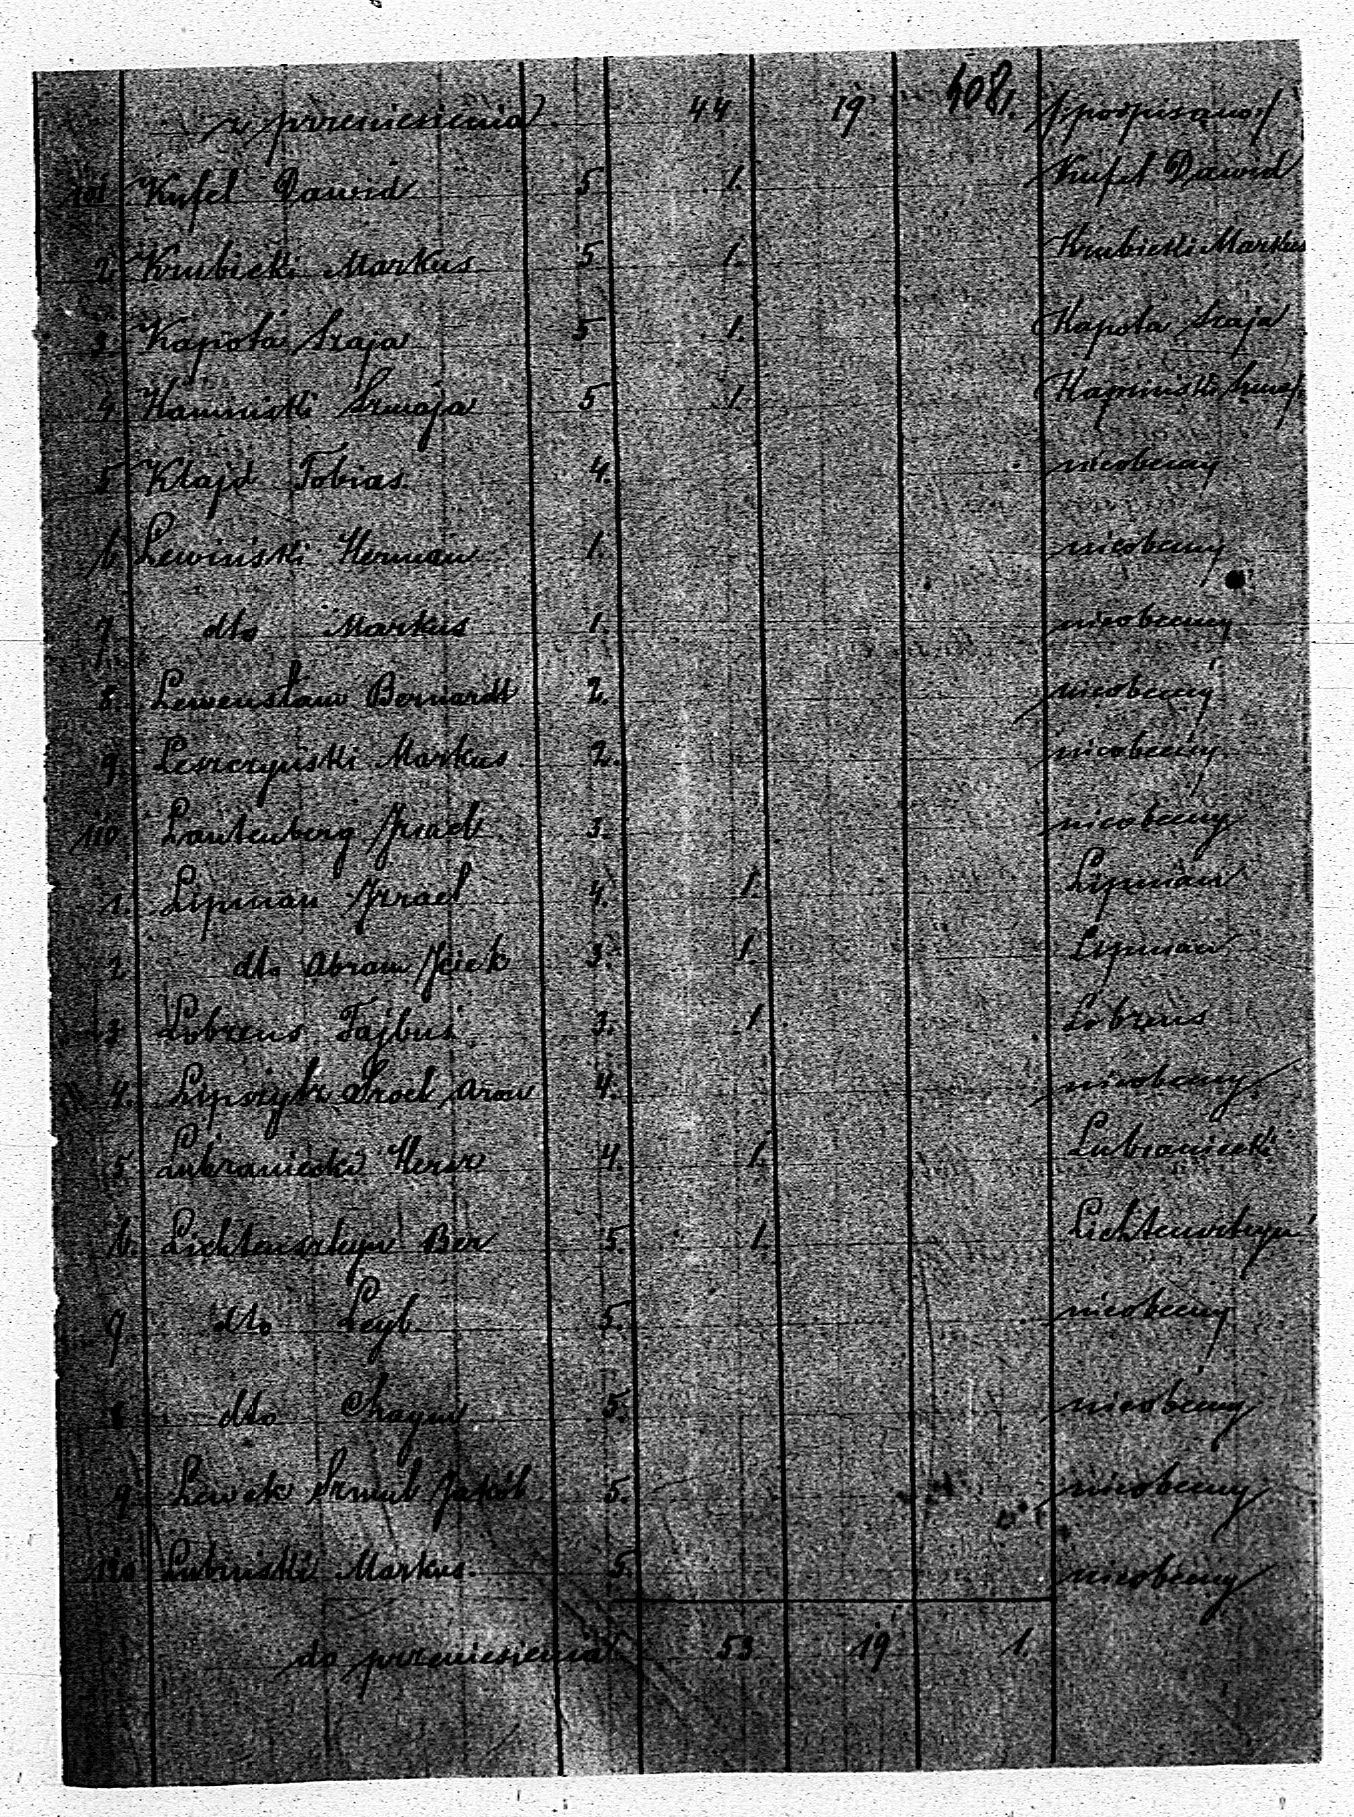 z przeniesienia 44 19 1. /podpisano/
101 Kufel Dawid 5 1. Kufel Dawid
2. Krubicki Markus 5 1. Krubicki Markus
3. Kapota Szaja 5 1. Kapota Szaja
4. Kaminski Szmaja 5 1. Kaminski Szmaja
5 Klajd Tobias. 4. nieobecny
6 Lewiński Herman 1. nieobecny
7. dto Markus 1. nieobecny
8. Lewenstam Bernardt 2. nieobecny
9. Leszczyński Markus 2. nieobecny
110 Lautenberg Izrael 3. nieobecny
1. Lipman Izrael 4. 1. Lipman
2 dto Abram Icick 3. 1. Lipman
3 Lobzens Fajbus 3. 1. Lobzens
4. Lipszytz Sroel Aron 4. nieobecny
5 Lubraniecki Hersz 4. 1. Lubraniecki
6. Lichtensztejn Ber 5. 1. Lichtensztejn
7. dto Lejb 5. nieobecny
8 dto Chaym 5. nieobecny
9. Lewek Szmul Jakób 5. nieobecny
120 Lubinski Markus. 5. nieobecny
do przeniesienia 53 19 1.